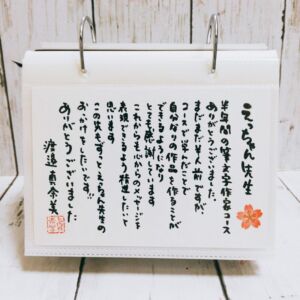 えっちゃん先生
半年間の筆文字作家コース
ありがとうございました。
まだまだ半人前ですが、
コースで学んだことで
自分なりの作品を作ることが
できるようになり
とても感謝しています。
これからも心からのメッセージを
表現できるよう精進したいと
思います。
この先もずっとえっちゃん先生の
おっかけをしたいです!!
ありがとうございました
渡邉 美奈